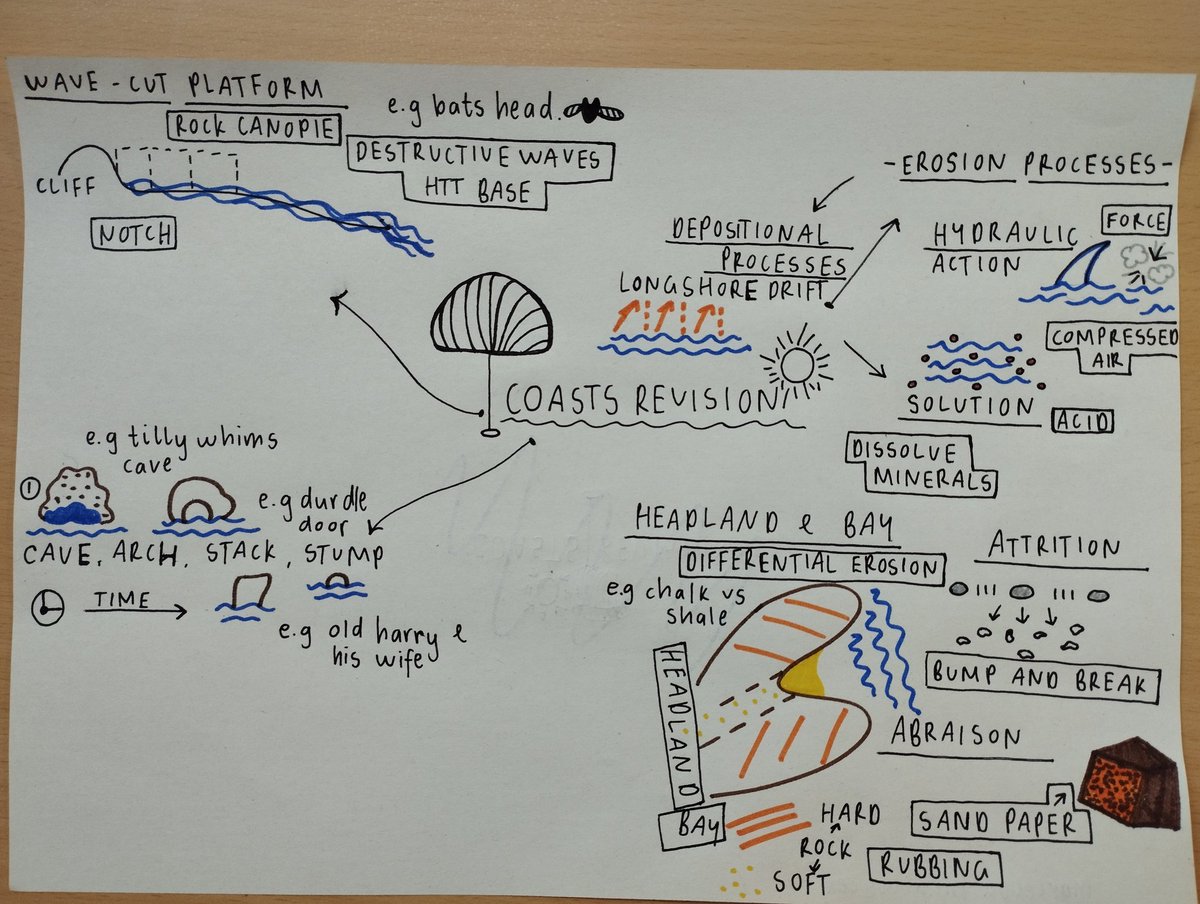 WAVE-CUT PLATFORM
ROCK CANOPIE
e.g bats head.
DESTRUCTIVE WAVES
HTT BASE
CLIFF
NOTCH
-EROSION PROCESSES-
DEPOSITIONAL
PROCESSES
LONGSHORE DRIFT
HYDRAULIC
ACTION
FORCE
COMPRESSED
AIR
COASTS REVISION
SOLUTION
ACID
DISSOLVE
MINERALS
e.g tilly whims
cave
1
e.g durdle
door
CAVE, ARCH, STACK, STUMP
TIME
e.g old harry &
his wife
HEADLAND & BAY
DIFFERENTIAL EROSION
e.g chalk vs
shale
HEADLAND
BAY
HARD
ROCK
SOFT
ATTRITION
BUMP AND BREAK
ABRAISON
SAND PAPER
RUBBING